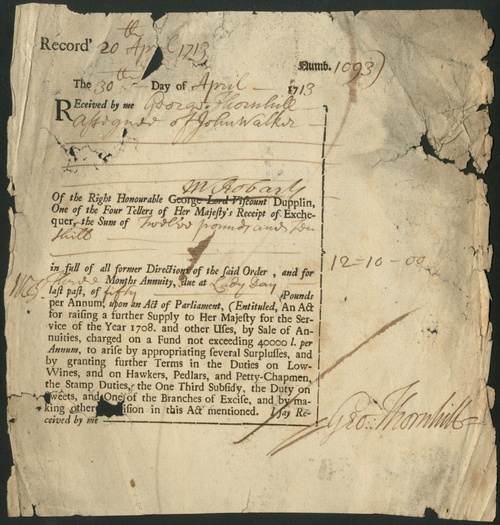 Record' 20th April 1713
Numb. 1093)
The 30th Day of April 1713
Received by me George Thornhill
Assignee of John Walker
Mr Robarts
Of the Right Honourable George Lord Viscount Dupplin,
One of the Four Tellers of Her Majesty's Receipt of Exche-
quer, the Sum of Twelve pounds and ten
shill
in full of all former Directions of the said Order, and for
Three Months Annuity, due at Lady Day
last past, of fifty Pounds
per Annum, upon an Act of Parliament, (Entituled, An Act
for raising a further Supply to Her Majesty for the Ser-
vice of the Year 1708. and other Uses, by Sale of An-
nuities, charged on a Fund not exceeding 40000 l. per
Annum, to arise by appropriating several Surplusses, and
by granting further Terms in the Duties on Low-
Wines, and on Hawkers, Pedlars, and Petty-Chapmen,
the Stamp Duties, the One Third Subsidy, the Duty on
weets, and One of the Branches of Excise, and by ma-
king other ision in this Act mentioned. I say Re-
ceived by me
12-10-00
Geo: Thornhill